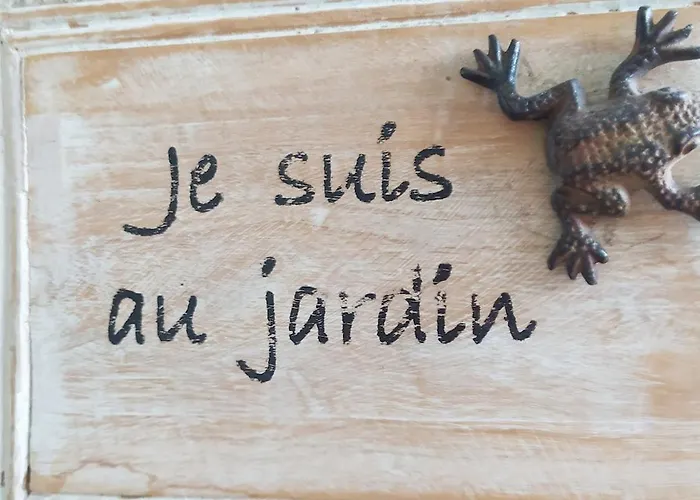 Je suis
au jardin